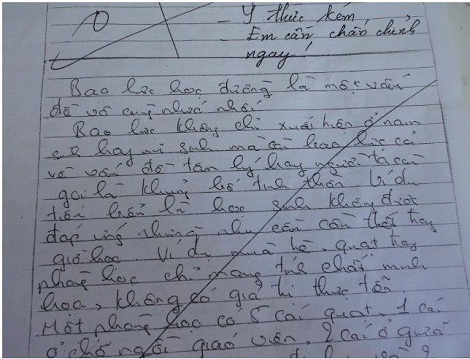 0
- Ý thức kém.
- Em cần chấn chỉnh
ngay!
Bạo lực học đường là một vấn
đề vô cùng nhức nhối
Bạo lực không chỉ xuất hiện ở nam
sinh hay nữ sinh mà còn bạo lực cả
về vấn đề tâm lý hay người ta còn
gọi là khủng bố tinh thần. Ví dụ
là học sinh không được
đáp ứng những nhu cầu cần thiết hay
giờ học. Ví dụ mùa hè, quạt hay
phòng học chỉ mang tính chất minh
họa, không có giá trị thực tiễn.
Một phòng học có 5 cái quạt, 1 cái
ở chỗ ngồi giáo viên, 2 cái ở giữa